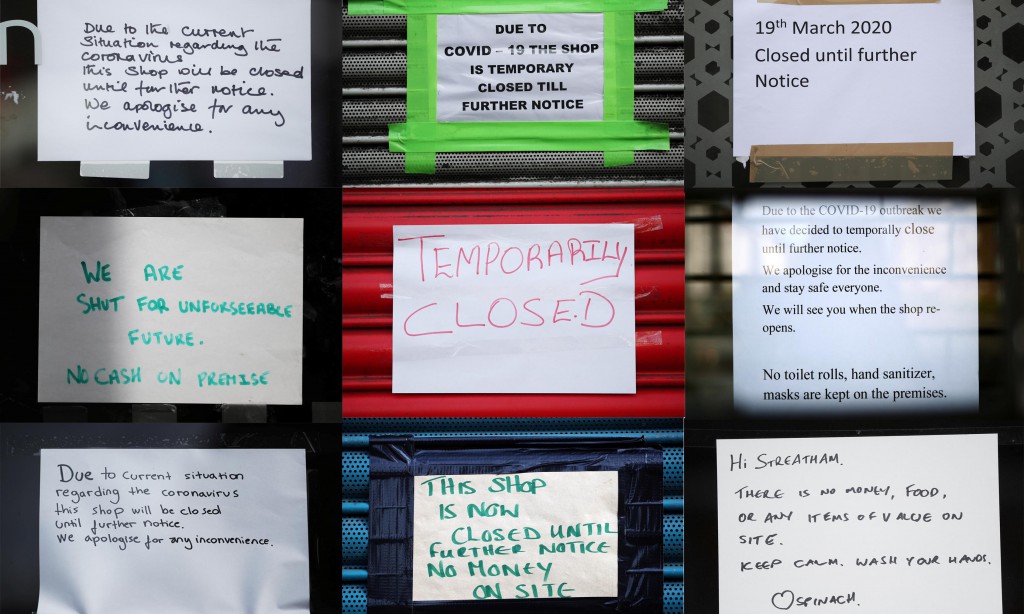 n
Due to the current
Situation regarding the
coronavirus
this shop will be closed
until further notice.
We apologise for any
inconvenience.
DUE TO
COVID – 19 THE SHOP
IS TEMPORARY
CLOSED TILL
FURTHER NOTICE
19th March 2020
Closed until further
Notice
WE ARE
SHUT FOR UNFORSEEABLE
FUTURE.
NO CASH ON PREMISE
TEMPORARILY
CLOSED
Due to the COVID-19 outbreak we
have decided to temporally close
until further notice.
We apologise for the inconvenience
and stay safe everyone.
We will see you when the shop re-
opens.
No toilet rolls, hand sanitizer,
masks are kept on the premises.
Due to current situation
regarding the coronavirus
this shop will be closed
until further notice.
We apologise for any inconvenience.
THIS SHOP
IS NOW
CLOSED UNTIL
FURTHER NOTICE
NO MONEY
ON SITE
Hi STREATHAM.
THERE IS NO MONEY, FOOD,
OR ANY ITEMS OF VALUE ON
SITE.
KEEP CALM. WASH YOUR HANDS.
♡SPINACH.